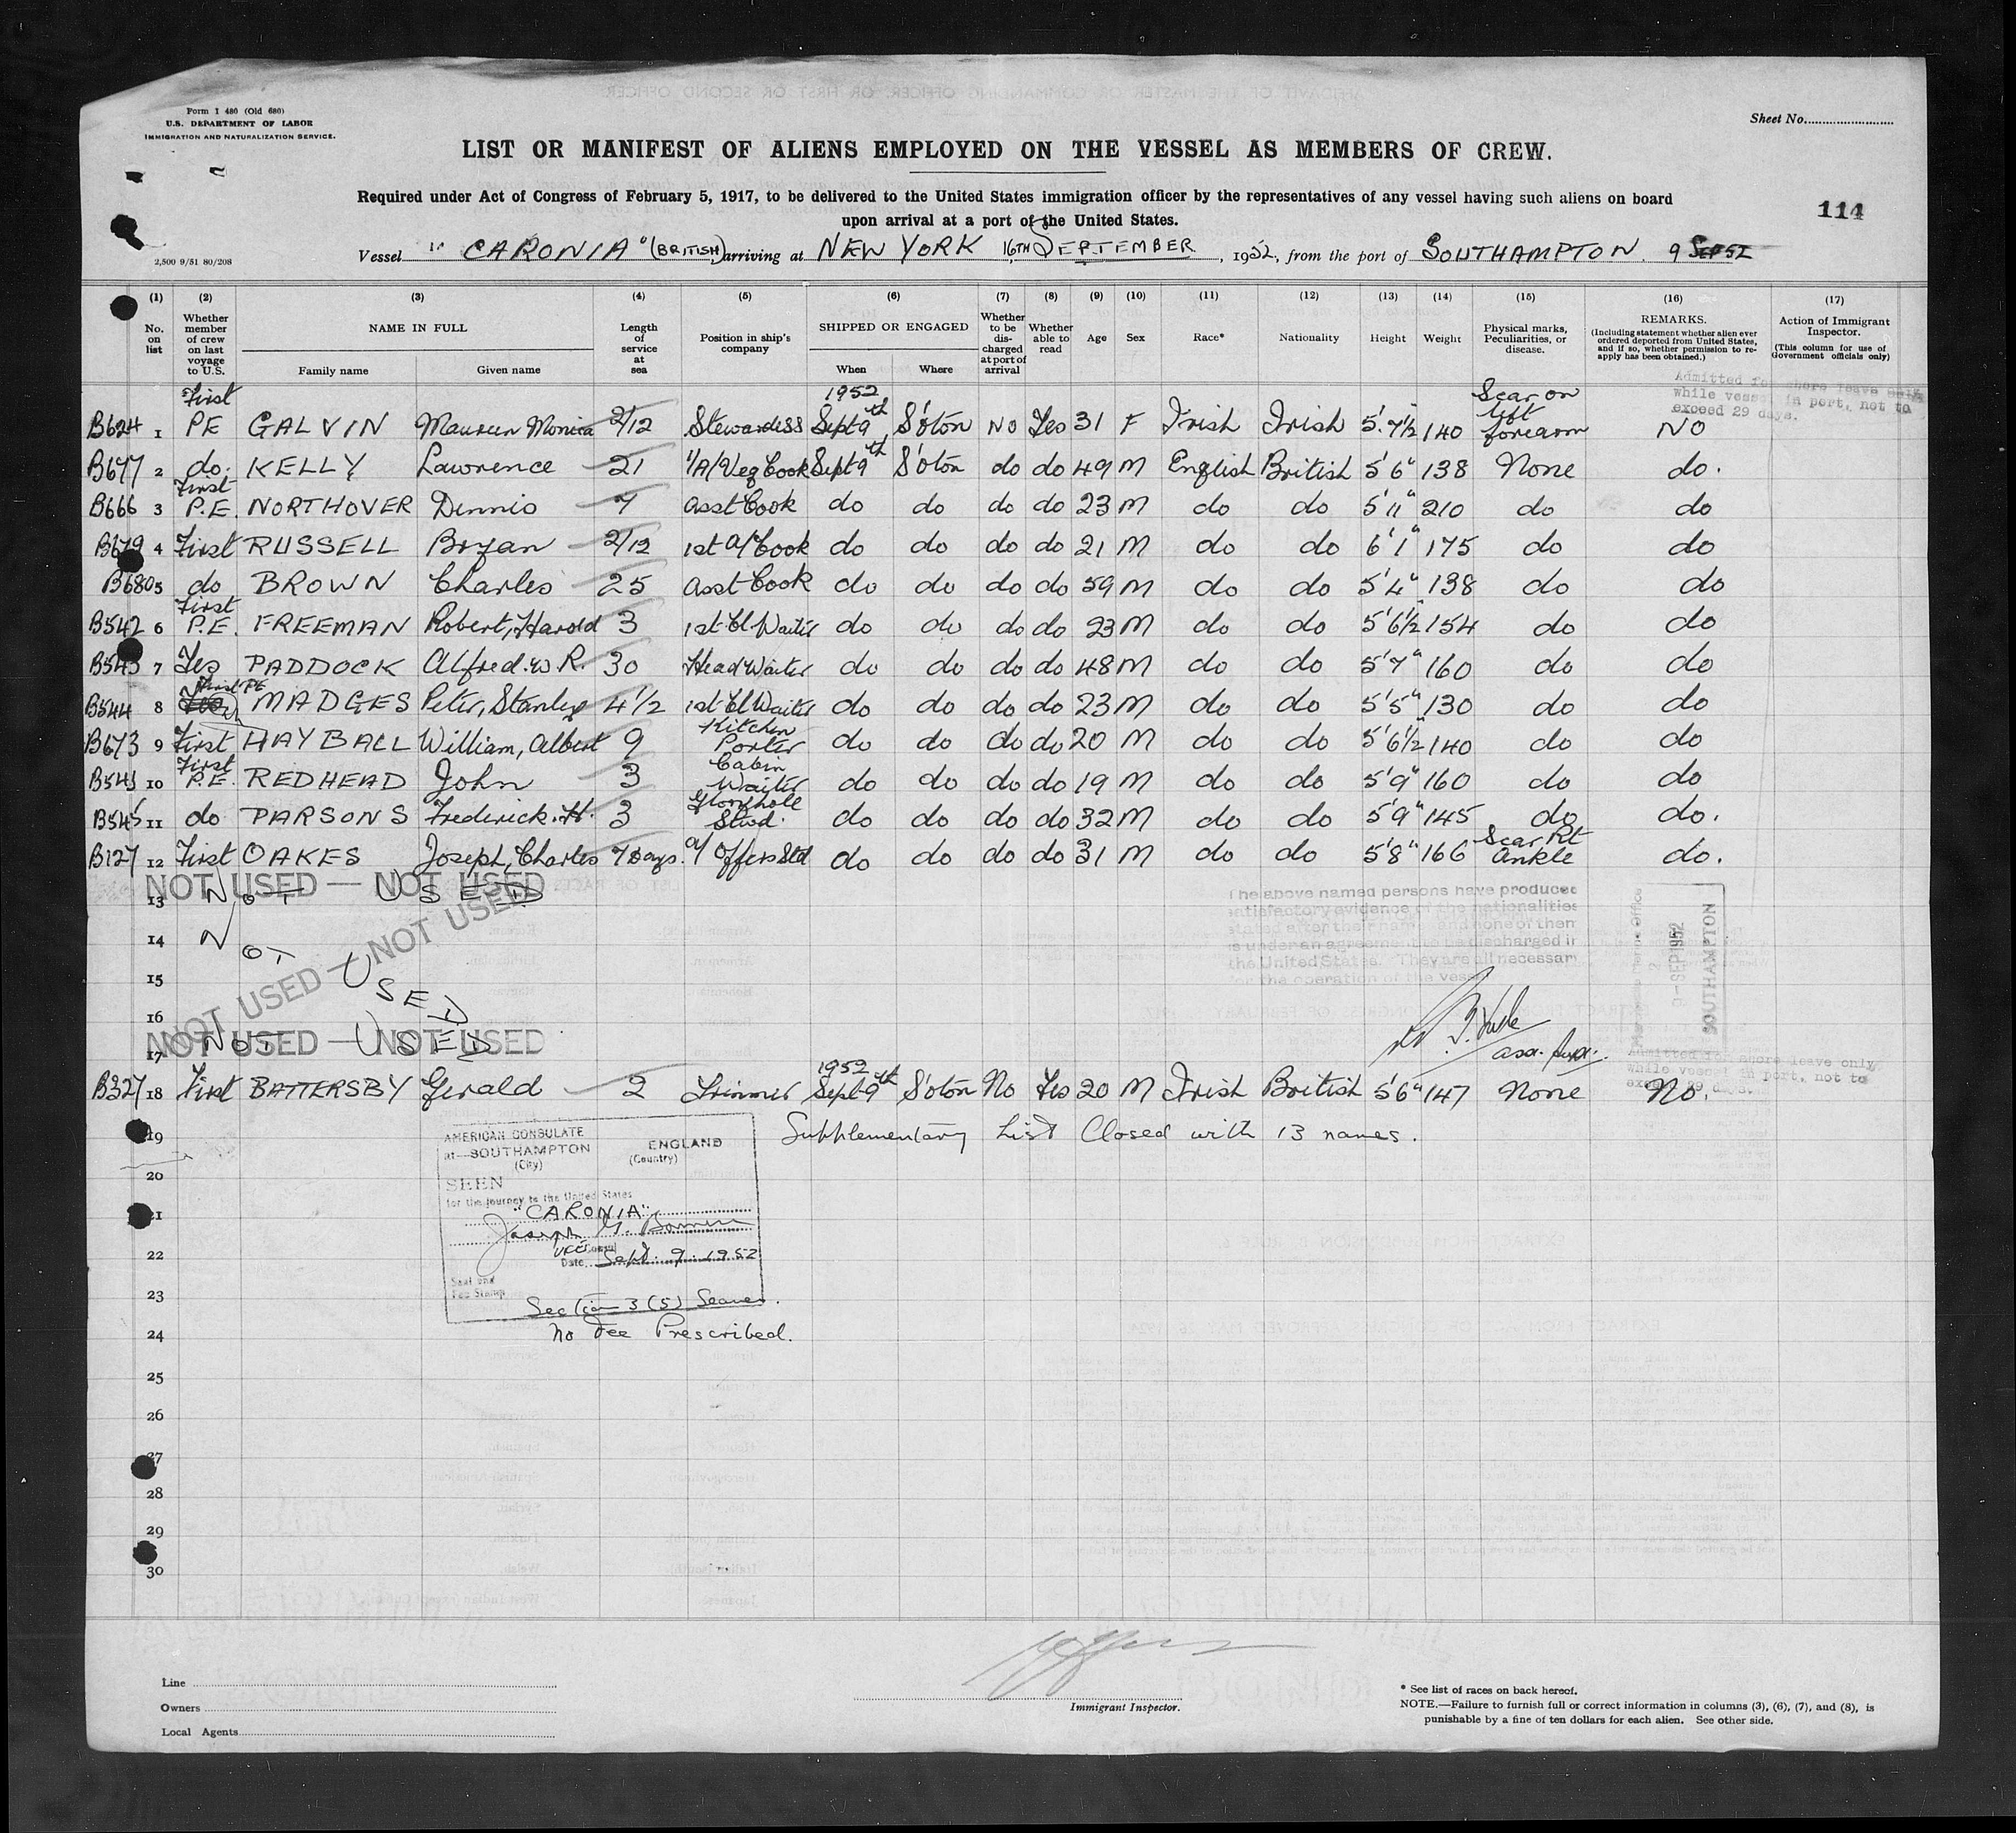 Form I 480 (Old 680)
U.S. DEPARTMENT OF LABOR
IMMIGRATION AND NATURALIZATION SERVICE.
Sheet No.
LIST OR MANIFEST OF ALIENS EMPLOYED ON THE VESSEL AS MEMBERS OF CREW.
Required under Act of Congress of February 5, 1917, to be delivered to the United States immigration officer by the representatives of any vessel having such aliens on board
upon arrival at a port of the United States.
114
2,500 9/51 80/208
Vessel "CARONIA" (BRITISH) arriving at NEW YORK 16TH SEPTEMBER, 1952, from the port of SOUTHAMPTON. 9 SEP 52
(1) (2) (3) (4) (5) (6) (7) (8) (9) (10) (11) (12) (13) (14) (15) (16) (17)
No. on list
Whether member of crew on last voyage to U.S.
NAME IN FULL
Family name
Given name
Length of service at sea
Position in ship's company
SHIPPED OR ENGAGED
When
Where
Whether to be discharged at port of arrival
Whether able to read
Age
Sex
Race*
Nationality
Height
Weight
Physical marks, Peculiarities, or disease.
REMARKS.
(Including statement whether alien ever ordered deported from United States, and if so, whether permission to reapply has been obtained.)
Action of Immigrant Inspector.
(This column for use of Government officials only)
Admitted for shore leave only
while vessel in port, not to
exceed 29 days.
B624 1 First PE GALVIN Maureen Monica 2/12 Stewardess 1952 Sept 9th S'oton NO Yes 31 F Irish Irish 5'.7½ 140 Scar on left forearm NO
B677 2 do. KELLY Lawrence 21 1/A/Veg Cook Sept 9th S'oton do do 49 M English British 5'6" 138 None do.
B666 3 First P.E. NORTHOVER Dennis 7 Asst Cook do do do do 23 M do do 5'11" 210 do do
B679 4 First RUSSELL Bryan 2/12 1st A/Cook do do do do 21 M do do 6'1" 175 do do
B680 5 do BROWN Charles 25 Asst Cook do do do do 59 M do do 5'4" 138 do do
B542 6 First P.E. FREEMAN Robert, Harold 3 1st Cl Waiter do do do do 23 M do do 5'6½ 154 do do
B543 7 Yes PADDOCK Alfred. W. R. 30 Head Waiter do do do do 48 M do do 5'7" 160 do do
B544 8 First PE MADGES Peter, Stanley 4½ 1st Cl Waiter do do do do 23 M do do 5'5" 130 do do
B673 9 First HAYBALL William, Albert 9 Kitchen Porter do do do do 20 M do do 5'6½" 140 do do
B541 10 First P.E. REDHEAD John 3 Cabin Waiter do do do do 19 M do do 5'9" 160 do do
B545 11 do PARSONS Frederick. H. 3 Gloryhole Stwd. do do do do 32 M do do 5'9" 145 do do.
B127 12 First OAKES Joseph, Charles 7 Days. A/ Offers Std do do do do 31 M do do 5'8" 166 Scar Rt Ankle do.
NOT USED — NOT USED
13 NOT USED
14 NOT USED
NOT USED — NOT USED
15
16
NOT USED — NOT USED
17 NOT USED
The above named persons have produced
satisfactory evidence of the nationalities
stated after their names and none of them
is under an agreement to be discharged in
the United States. They are all necessary
for the operation of the vessel
9 - SEP 1952
SOUTHAMPTON
Admitted for shore leave only
while vessel in port, not to
exceed 29 days.
B327 18 First BATTERSBY Gerald 2 Trimmer 1952 Sept 9th S'oton No Yes 20 M Irish British 5'6" 147 None No.
19 Supplementary List Closed with 13 names.
AMERICAN CONSULATE
at SOUTHAMPTON ENGLAND
(City) (Country)
SEEN
for the journey to the United States
"CARONIA"
Vice Consul
Date Sept. 9. 1952
Seal and
Fee Stamp
Section 3 (5)
No Fee Prescribed.
20
21
22
23
24
25
26
27
28
29
30
Line
Owners
Local Agents
Immigrant Inspector.
* See list of races on back hereof.
NOTE.—Failure to furnish full or correct information in columns (3), (6), (7), and (8), is
punishable by a fine of ten dollars for each alien. See other side.